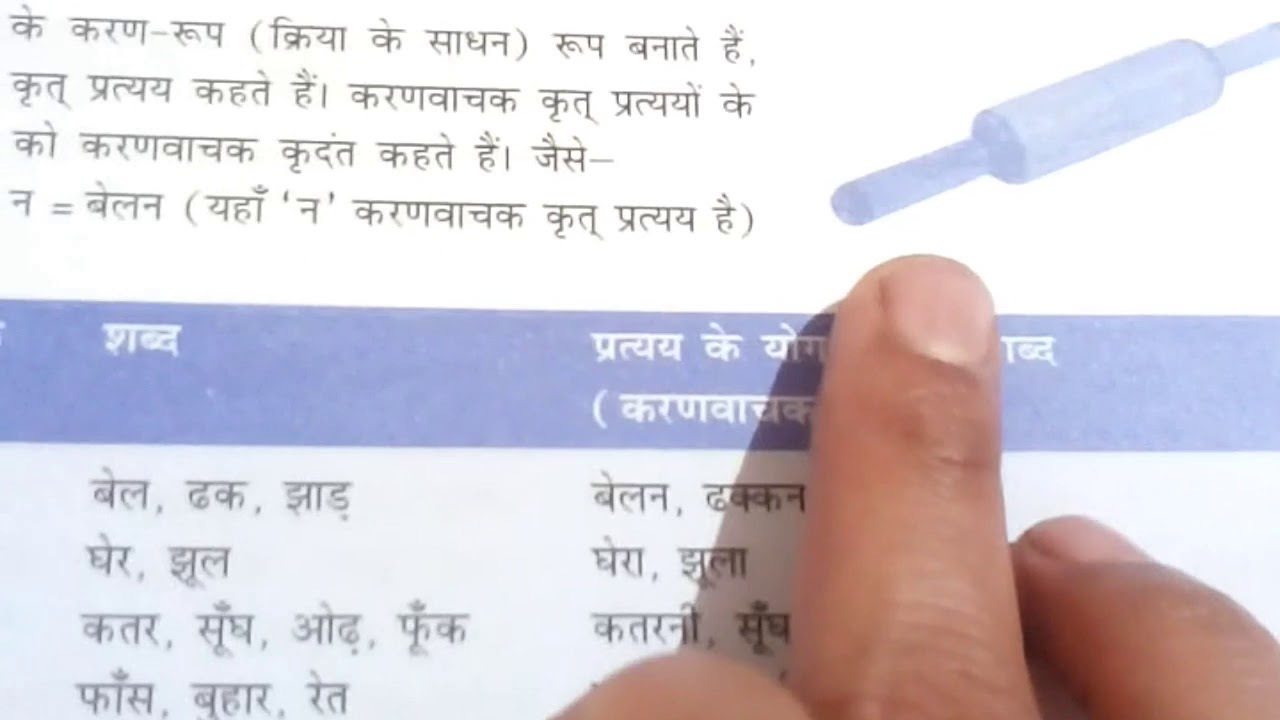 के करण-रूप (क्रिया के साधन) रूप बनाते हैं,
कृत् प्रत्यय कहते हैं। करणवाचक कृत् प्रत्ययों के
को करणवाचक कृदंत कहते हैं। जैसे—
न = बेलन (यहाँ ‘न’ करणवाचक कृत् प्रत्यय है)
शब्द प्रत्यय के योग
(करणवाचक
बेल, ढक, झाड़ बेलन, ढक्कन
घेर, झूल घेरा, झूला
कतर, सूँघ, ओढ़, फूँक कतरनी, सूँघ
फाँस, बुहार, रेत